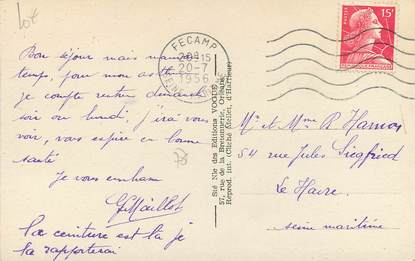 Bon séjour mais mauvais
temps, pour mon asthme
je compte rentrer dimanche
soir ou lundi, j'irai vous
voir, vous espère en bonne
santé
Je vous embrasse
G Maillot
la ceinture est là je
la rapporterai
FECAMP
20-7
1956
15F
Sté Nlle des Editions VOGUE
57, rue de la Bretonnerie, Orléans
Reprod. int. (Cliché Métier, d'Harfleur)
Mr et Mme R Hamon
54 rue Jules Siegfried
Le Havre
seine maritime